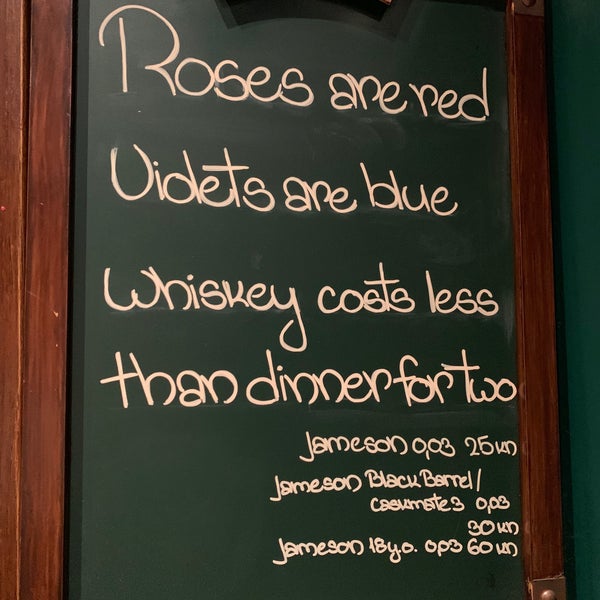 Roses are red
Violets are blue
Whiskey costs less
than dinner for two
Jameson 0,03 25 kn
Jameson Black Barrel/
Caskmates 0,03
30 kn
Jameson 18 y.o. 0,03 60 kn